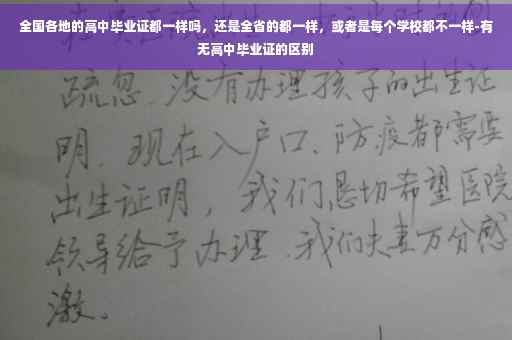 全国各地的高中毕业证都一样吗，还是全省的都一样，或者是每个学校都不一样-有
无高中毕业证的区别
疏忽.没有办理孩子的出生证
明.现在入户口、防疫都需要
出生证明，我们恳切希望医院
领导给予办理.我们夫妻万分感
激.